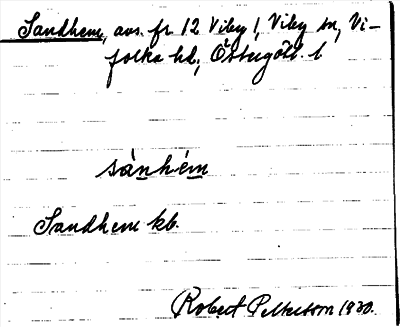 Sandhem, avs. fr 12 Viby 1, Viby sn, Vi-
folka hd, Östergötl. l
sànhém
Sandhem kb.
Robert Pettersson 1930.